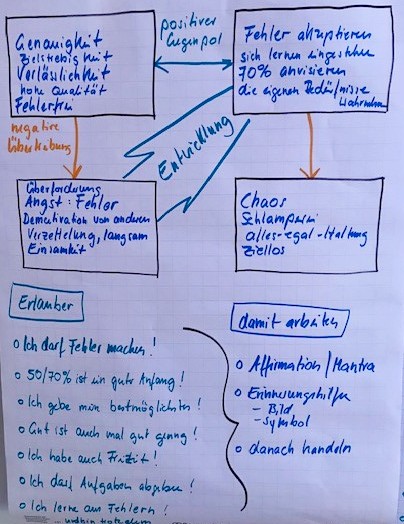 Genauigkeit
Zielstrebigkeit
Verlässlichkeit
hohe Qualität
Fehlerfrei
positiver
Gegenpol
Fehler akzeptieren
sich lernen eingestehen
70% anvisieren
die eigenen Bedürfnisse
wahrnehmen
negative
Überhebung
Entwicklung
Überforderung
Angst: Fehler
Demotivation von anderen
Verzettelung, langsam
Einsamkeit
Chaos
Schlamperei
alles-egal-Haltung
Ziellos
Erlauber
Ich darf Fehler machen!
50/70% ist ein guter Anfang!
Ich gebe mein bestmöglichstes!
Gut ist auch mal gut genug!
Ich habe auch Freizeit!
Ich darf Aufgaben abgeben!
Ich lerne aus Fehlern!
damit arbeiten
Affirmation/Mantra
Erinnerungshilfen
- Bild
- Symbol
danach handeln